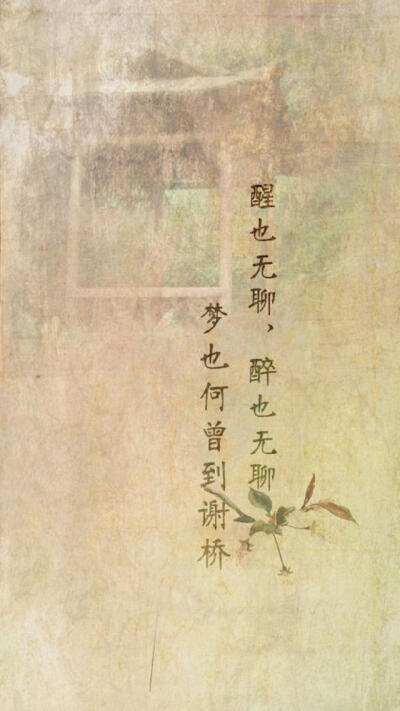 醒也无聊，醉也无聊
梦也何曾到谢桥